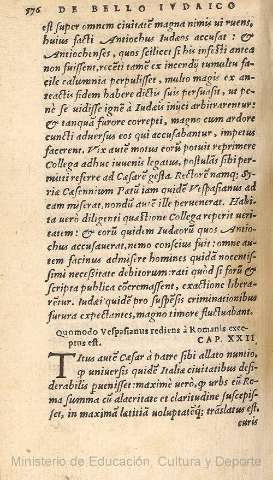 576 DE BELLO IVDAICO
est super omnem ciuitatē magna nimis ui ruens,
huius facti Antiochus Iudæos accusat: &
Antiochenses, quos scilicet si his infesti antea
non fuissent, recēti tamē ex incendij tumultu fa-
cile calumnia perpulisset, multo magis ex an-
teactis fidem habere dictis suis persuasit, ut pe-
nè se uidisse ignē à Iudæis inijci arbitrarentur:
& tanquā furore correpti, magno cum ardore
cuncti aduersus eos qui accusabantur, impetus
facerent. Vix autē motus eorū potuit reprimere
Collega adhuc iuuenis legatus, postulās sibi per-
mitti referre ad Cæsarē gesta. Rectorē namq; Sy-
riæ Cæsennium Pætū iam quidē Vespasianus ad
eam miserat, nondū autē ille peruenerat. Habi-
ta uerò diligenti quæstione Collega reperit ueri-
tatem: & eorū quidem Iudæorū quos Antio-
chus accusauerat, nemo conscius fuit: omne au-
tem facinus admisere homines quidē nocentis-
simi necessitate debitorum: rati quòd si forū &
scripta publica cōcremassent, exactione libera-
rētur. Iudæi quidē pro suspēsis criminationibus
futura expectantes, magno timore fluctuabant.
Quomodo Vespasianus rediens à Romanis exce-
ptus est. CAP. XXII
Titus autē Cæsar à patre sibi allato nuntio,
ꝙ uniuersis quidē Italiæ ciuitatibus desi-
derabilis uenisset: maximè uerò, ꝙ urbs eū Ro-
ma summa cū alacritate et claritudine suscepis-
set, in maximā lætitiā uoluptatēq; traslatus est,
curis
Ministerio de Educación, Cultura y Deporte